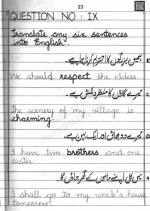 23
QUESTION NO : IX
Translate any six sentences
into English.
ہمیں بزرگوں کا احترام کرنا چاہیے۔
We should respect the elders
میرے گاؤں کا منظر دلکش ہے۔
The scenery of my village is
charming.
میرے دو بھائی اور ایک بہن ہے۔
I have two brothers and one
sister.
میں کل اپنے ماموں کے گھر جاؤں گا۔
I shall go to my uncle's house
tomorrow.